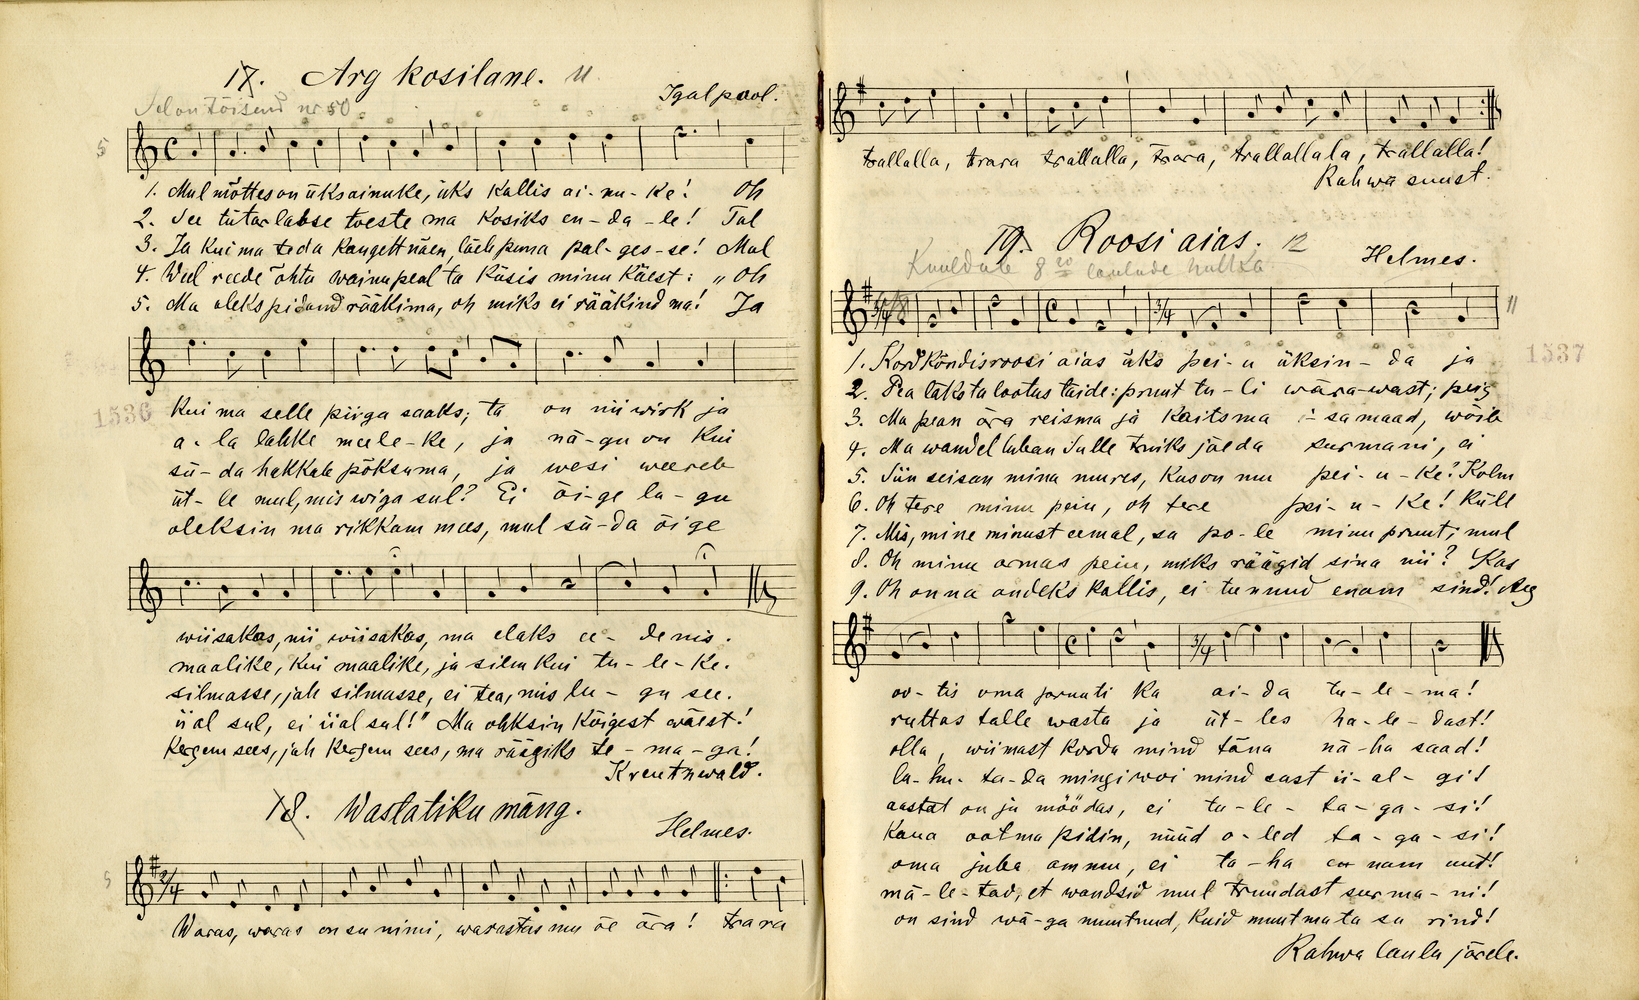 17. Arg kosilane. 11
Igal pool.
Sel on teisend nr 50
5
1. Mul mõttes on üks ainuke, üks kallis ai-nu-ke! Oh
2. See tütarlapse toeste ma kosiks en-da-le! Tal
3. Ja kui ma teda kaugelt näen, läeb puna pal-ges-se! Mul
4. Weel reede õhtu wainu peal ta küsis minu käest: „Oh
5. Ma oleks pidand rääkima, oh miks ei rääkind ma! Ja
1536
kui ma selle piiga saaks; ta on nii wirk ja
a-la lahke meele-ke, ja nä-gu on kui
sü-da hakkab põksuma, ja wesi weereb
üt-le mul, mis wiga sul? Ei õi-ge lu-gu
oleksin ma rikkam mees, mul sü-da õige
wiisakas, nii wiisakas, ma elaks ee-denis.
maalike, kui maalike, ja silm kui tu-le-ke.
silmasse, jah silmasse, ei tea, mis lu-gu see.
iial sul, ei iial sul!" Ma ohksin kõigest wäest!
kergem sees, jah kergem sees, ma räägiks te-ma-ga!
Kreutzwald.
18. Waslatiku mäng.
Helmes.
5
Waras, waras on su nimi, warastas mu õe ära! trara
trallalla, trara trallalla, trara, trallallala, trallalla!
Rahwa suust.
19. Roosi aias. 12
Helmes.
Kuuldub 8 laulude hulka
11
1537
1. Kord kõndis roosi aias üks pei-u üksin-da ja
2. Pea läks ta lootus täide: pruut tu-li wära-wast; peig
3. Ma pean ära reisma ja kaitsma i-samaad, wõib
4. Ma wandel luban Sulle truiks jäeda surmani, ei
5. Siin seisan mina mures, kus on mu pei-u-ke? Kolm
6. Oh tere minu peiu, oh tere pei-u-ke! Küll
7. Mis, mine minust eemal, sa po-le minu pruut; mul
8. Oh minu armas peiu, miks räägid sina nii? Kas
9. Oh anna andeks kallis, ei tunnud enam sind! Aeg
oo-tis oma pruuti ka ai-da tu-le-ma!
ruttas talle wasta ja üt-les ha-le-dast!
olla, wiimast korda mind täna nä-ha saad!
la-hu-ta-da mingi woi mind sust ii-al-gi!
aastat on ju möödas, ei tu-le-ta-ga-si!
Kaua ootma pidin, nüüd o-led ta-ga-si!
oma juba ammu, ei ta-ha en nam uut!
mä-le-tad, et wandsid mul truudast surma-ni!
on sind wä-ga muutnud, kuid muutmata su rind!
Rahwa laulu järele.